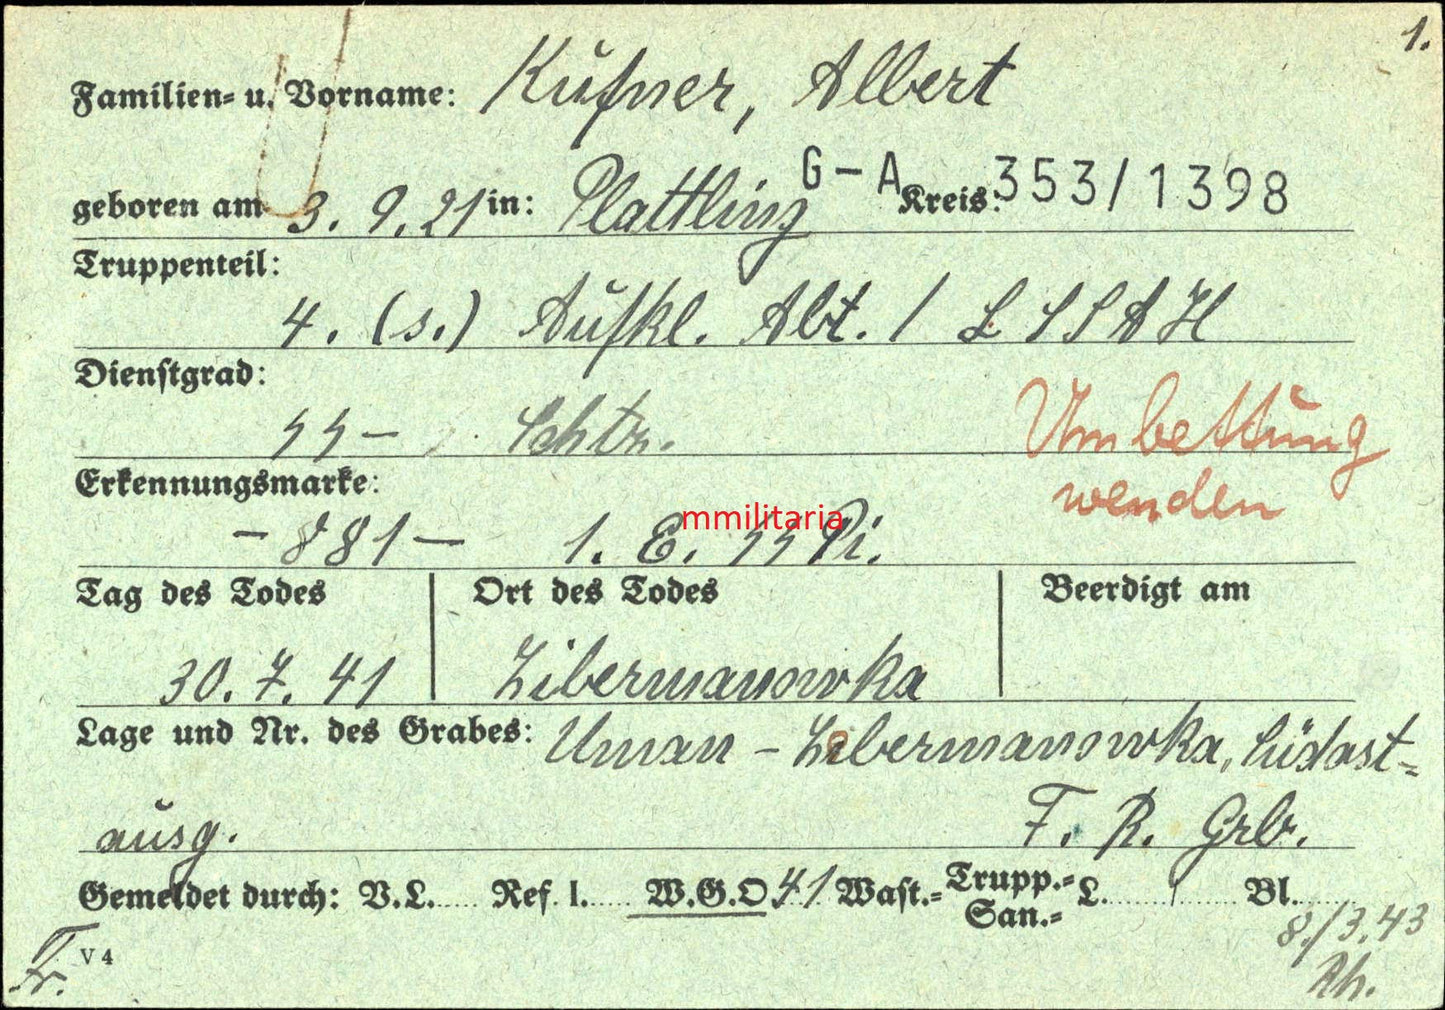 1.
Familien- u. Vorname: Kufner, Albert
G-A 353/1398
geboren am 3. 9. 21 in: Plattling Kreis:
Truppenteil:
4. (s.) Aufkl. Abt. / L SSAH
Dienstgrad:
SS- Schtz.
Umbettung
wenden
Erkennungsmarke:
- 881 - 1. E. SS Pi.
mmilitaria
Tag des Todes Ort des Todes Beerdigt am
30. 7. 41 Zibermanowka
Lage und Nr. des Grabes: Uman - Zibermanowka, Südost-
ausg. F. R. Grb.
Gemeldet durch: V.L. Ref. I. W.G.O. 41 Wast.- Trupp.- L. Bl.
San.-
8./3.43
Fr. V 4 Rh.